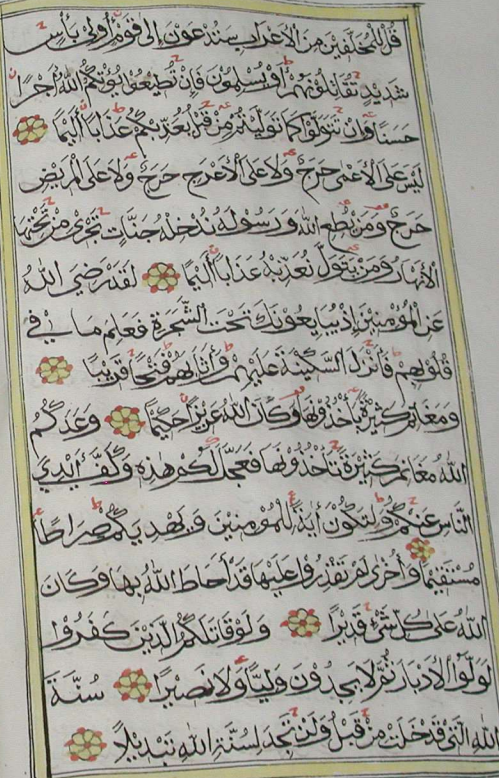 قُلْ لِلْمُخَلَّفِينَ مِنَ الْأَعْرَابِ سَتُدْعَوْنَ إِلَى قَوْمٍ أُولِي بَأْسٍ
شَدِيدٍ تُقَاتِلُونَهُمْ أَوْ يُسْلِمُونَ فَإِنْ تُطِيعُوا يُؤْتِكُمُ اللَّهُ أَجْرًا
حَسَنًا وَإِنْ تَتَوَلَّوْا كَمَا تَوَلَّيْتُمْ مِنْ قَبْلُ يُعَذِّبْكُمْ عَذَابًا أَلِيمًا
لَيْسَ عَلَى الْأَعْمَى حَرَجٌ وَلَا عَلَى الْأَعْرَجِ حَرَجٌ وَلَا عَلَى الْمَرِيضِ
حَرَجٌ وَمَنْ يُطِعِ اللَّهَ وَرَسُولَهُ يُدْخِلْهُ جَنَّاتٍ تَجْرِي مِنْ تَحْتِهَا
الْأَنْهَارُ وَمَنْ يَتَوَلَّ يُعَذِّبْهُ عَذَابًا أَلِيمًا لَقَدْ رَضِيَ اللَّهُ
عَنِ الْمُؤْمِنِينَ إِذْ يُبَايِعُونَكَ تَحْتَ الشَّجَرَةِ فَعَلِمَ مَا فِي
قُلُوبِهِمْ فَأَنْزَلَ السَّكِينَةَ عَلَيْهِمْ وَأَثَابَهُمْ فَتْحًا قَرِيبًا
وَمَغَانِمَ كَثِيرَةً يَأْخُذُونَهَا وَكَانَ اللَّهُ عَزِيزًا حَكِيمًا وَعَدَكُمُ
اللَّهُ مَغَانِمَ كَثِيرَةً تَأْخُذُونَهَا فَعَجَّلَ لَكُمْ هَذِهِ وَكَفَّ أَيْدِيَ
النَّاسِ عَنْكُمْ وَلِتَكُونَ آيَةً لِلْمُؤْمِنِينَ وَيَهْدِيَكُمْ صِرَاطًا
مُسْتَقِيمًا وَأُخْرَى لَمْ تَقْدِرُوا عَلَيْهَا قَدْ أَحَاطَ اللَّهُ بِهَا وَكَانَ
اللَّهُ عَلَى كُلِّ شَيْءٍ قَدِيرًا وَلَوْ قَاتَلَكُمُ الَّذِينَ كَفَرُوا
لَوَلَّوُا الْأَدْبَارَ ثُمَّ لَا يَجِدُونَ وَلِيًّا وَلَا نَصِيرًا سُنَّةَ
اللَّهِ الَّتِي قَدْ خَلَتْ مِنْ قَبْلُ وَلَنْ تَجِدَ لِسُنَّةِ اللَّهِ تَبْدِيلًا